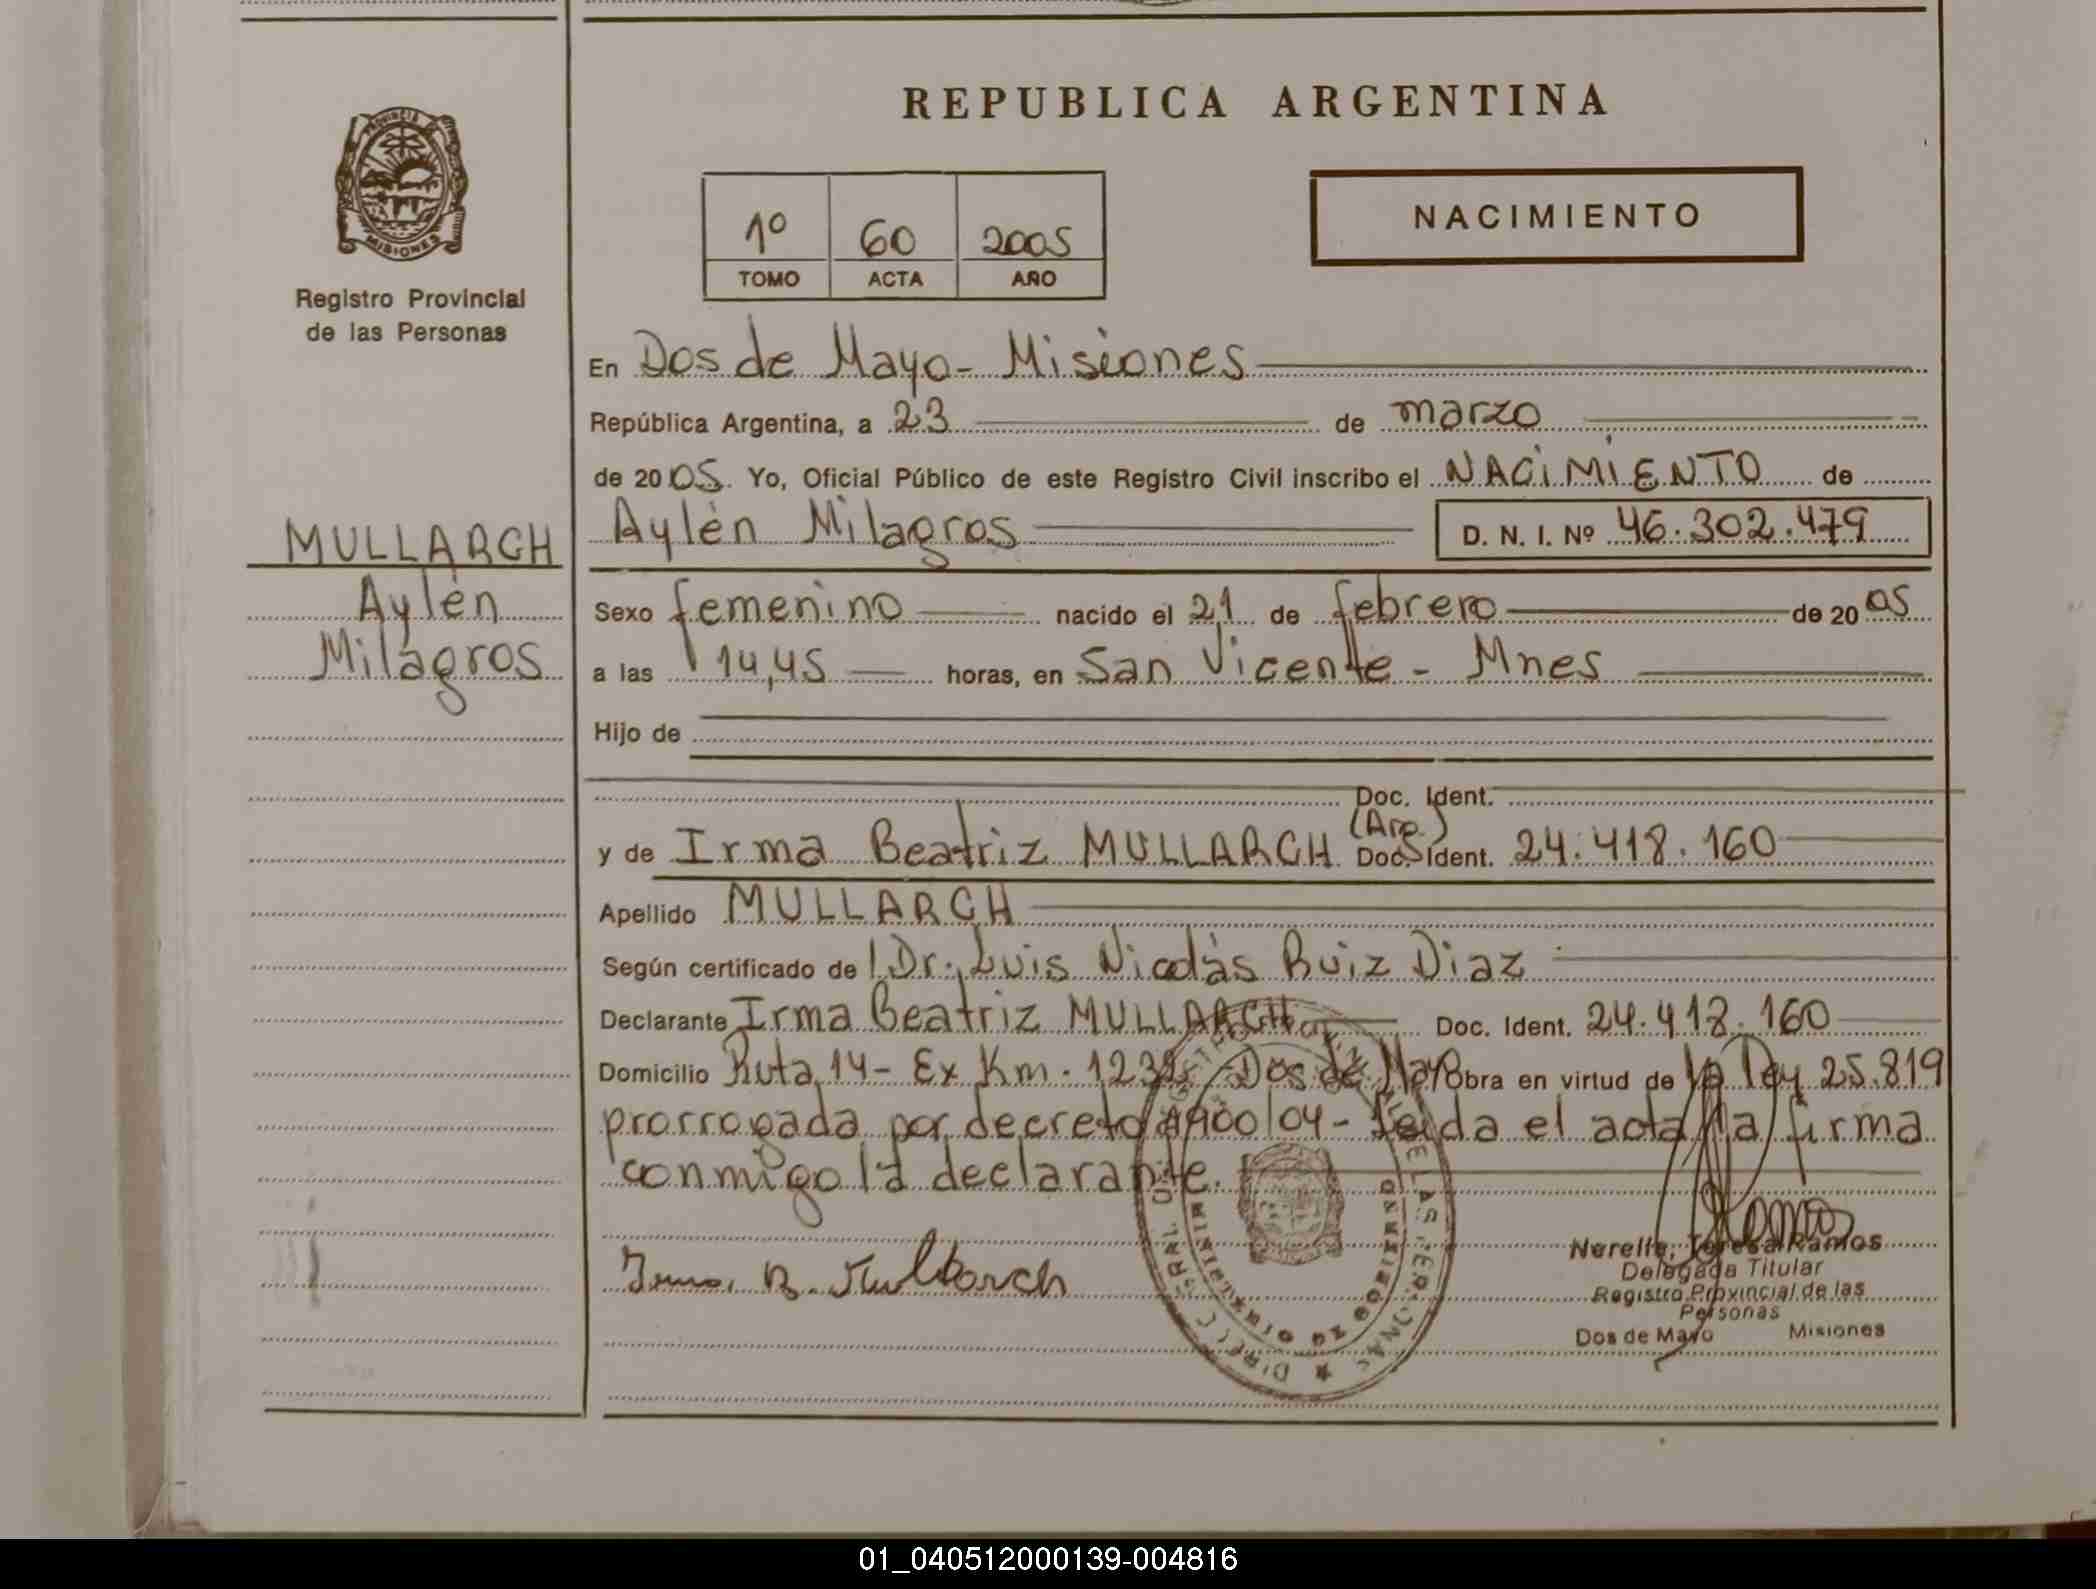 REPUBLICA ARGENTINA
PROVINCIA DE MISIONES
Registro Provincial
de las Personas
1º 60 2005
TOMO ACTA AÑO
NACIMIENTO
En Dos de Mayo - Misiones
República Argentina, a 23 de marzo
de 2005. Yo, Oficial Público de este Registro Civil inscribo el NACIMIENTO de
MULLARCH
Aylén
Milagros
Aylén Milagros D. N. I. Nº 46.302.479
Sexo femenino nacido el 21 de febrero de 2005
a las 14,45 horas, en San Vicente - Mnes
Hijo de
Doc. Ident.
y de Irma Beatriz MULLARCH (Arg.) Doc. Ident. 24.418.160
Apellido MULLARCH
Según certificado de Dr. Luis Nicolás Ruiz Diaz
Declarante Irma Beatriz MULLARCH Doc. Ident. 24.418.160
Domicilio Ruta 14 - Ex Km. 1232 - Dos de Mayo Obra en virtud de la Ley 25.819
prorrogada por decreto 1900/04 - Leida el acta la firma
conmigo la declarante.
Irma B. Mullarch
Teresa Ramos
Delegada Titular
Registro Provincial de las
Personas
Dos de Mayo Misiones
01_040512000139-004816